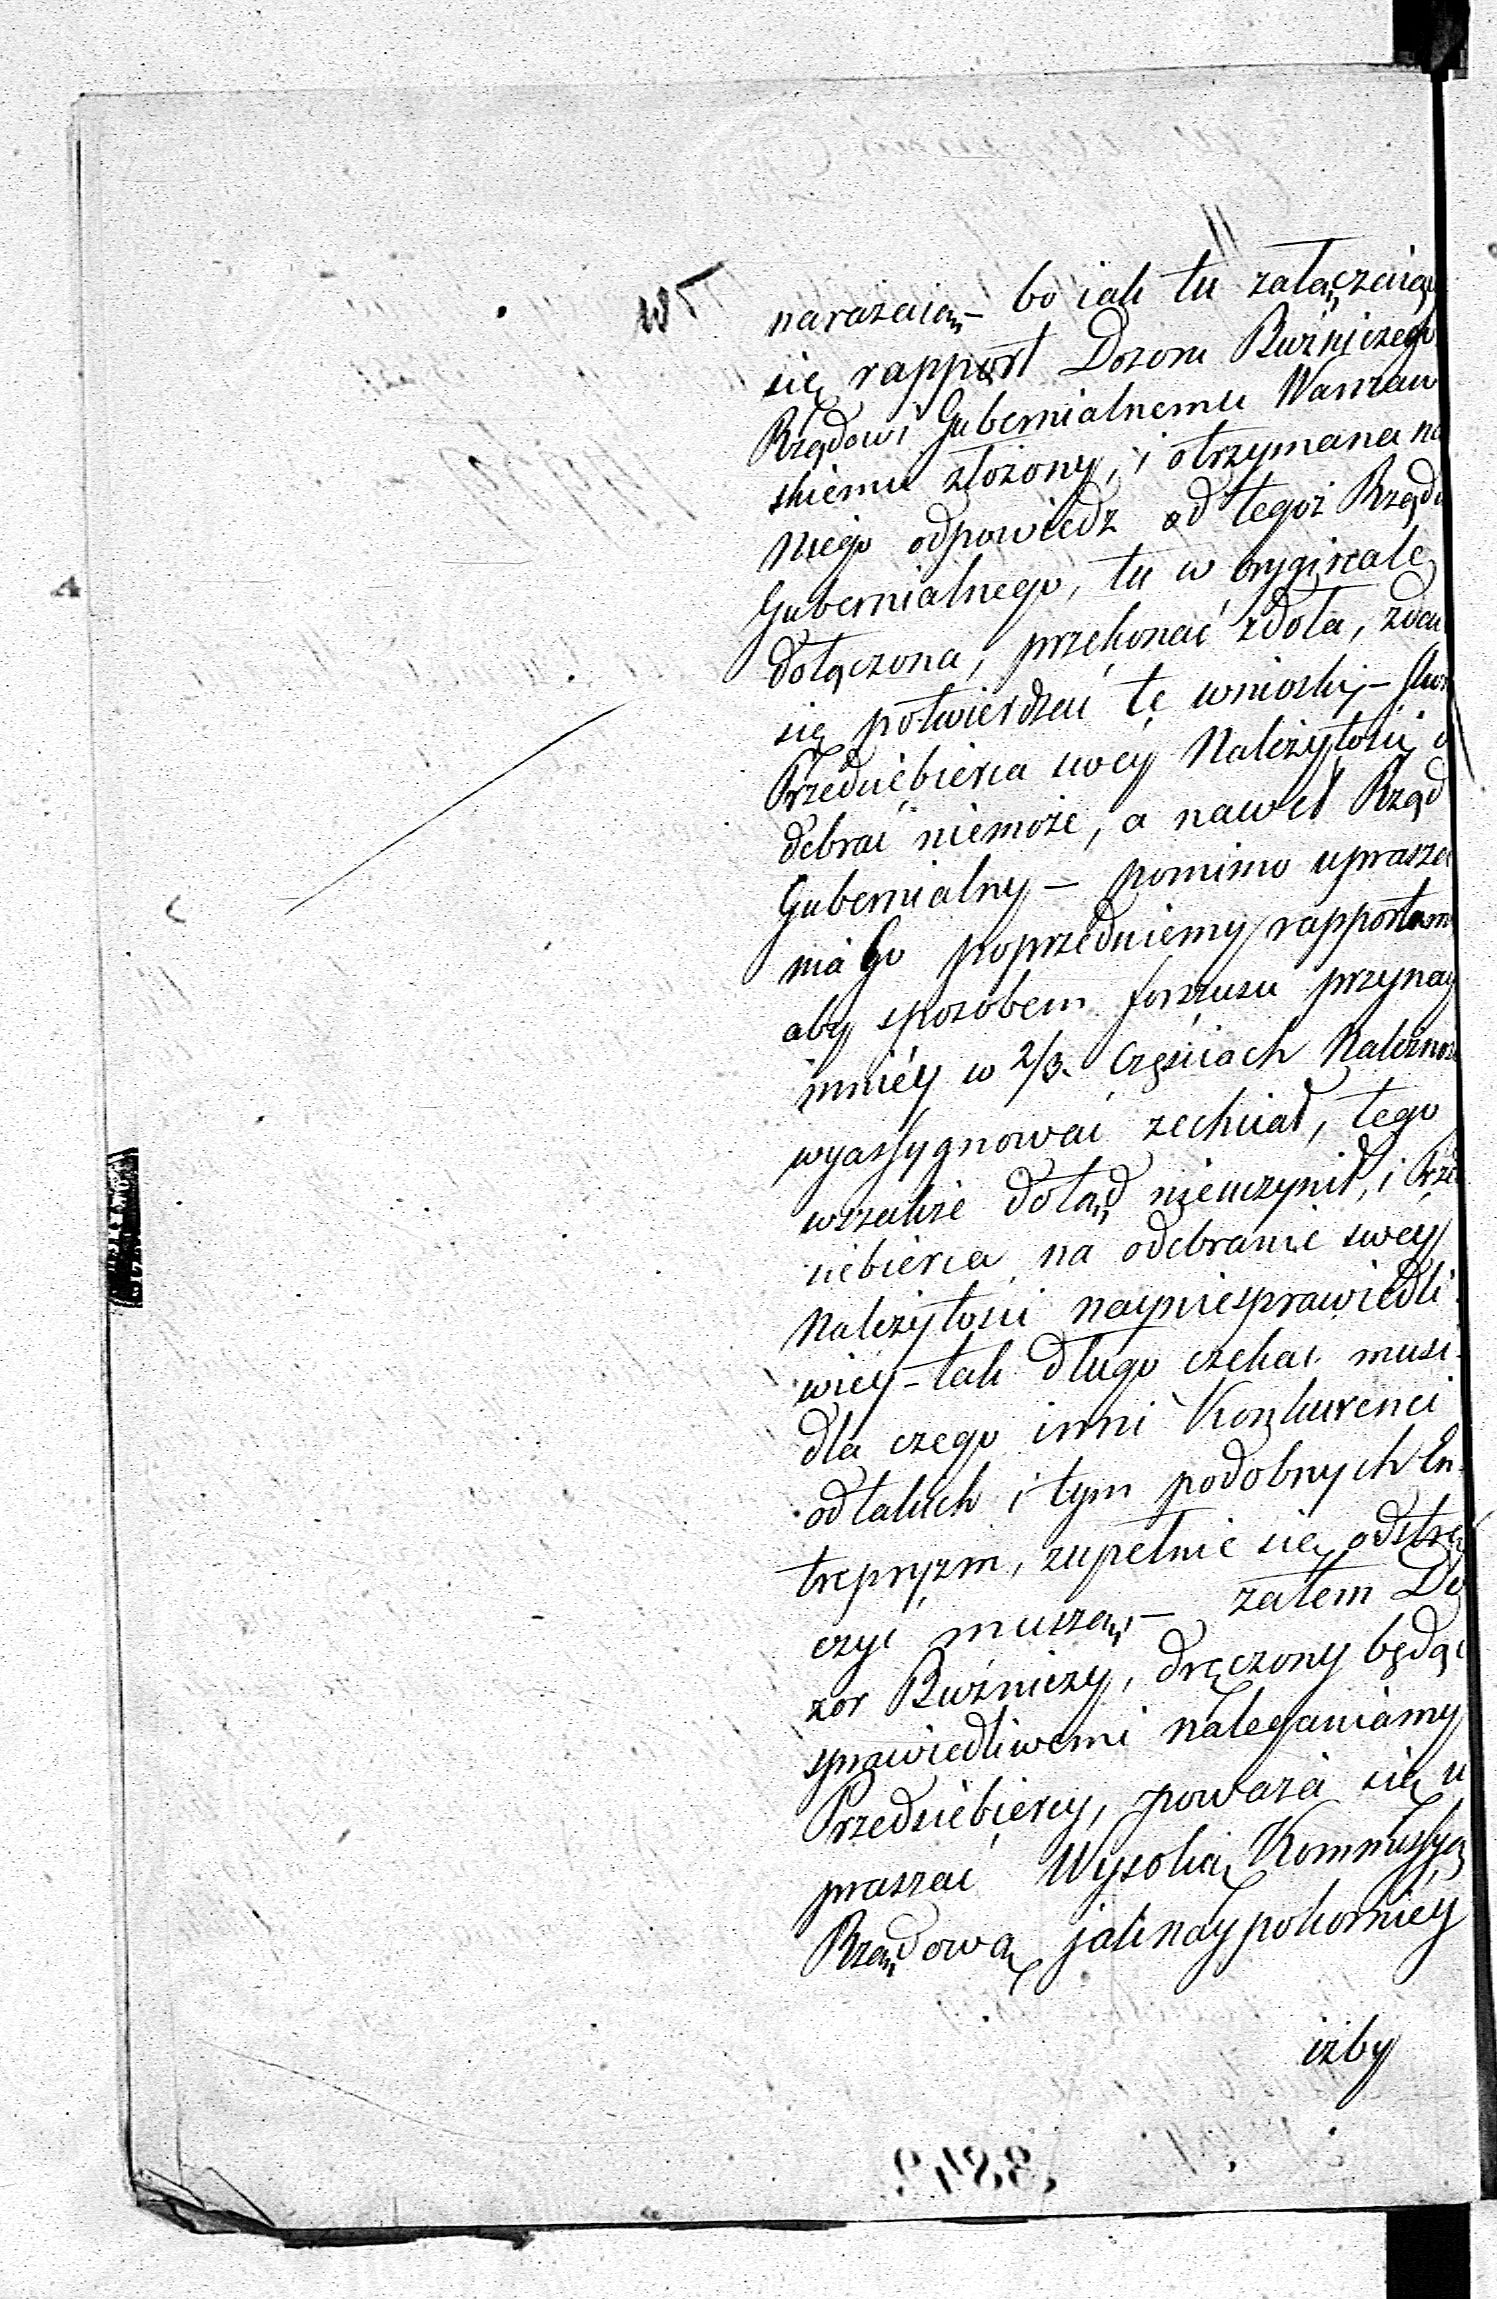 narażaią – bo iak tu załączaiąc
się rapport Dozoru Bużniczego
Rządowi Gubernialnemu Warszaw
skiemu złożony, i otrzymana na
niego odpowiedz od tegoż Rządu
Gubernialnego, tu w oryginale
dołączona, przekonać zdoła, zdaie
się potwierdzać te wnioski, –
Przedsiębierca swey Należytości o
debrać niemoże, a nawet Rząd
Gubernialny – pomimo uprasza
nia Go poprzedniemy rapportam
aby sposobem forszusu przynay
mniéy w 2/3. Częściach Należnoś
wyassygnować zechciał, tego
wszakże dotąd nieuczynił, i Przed
siebierca na odebranie swey
Należytości nayniesprawiedli
wiey – tak długo czekać musi
dla czego inni Konkurenci
od takich i tym podobnych En
trepryzm, zupełnie się odstrę
czyć muszą, – zatem Do
zor Bużniczy, dręczony będąc
sprawiedliwemi naleganiamy
Przedsiebiercy, poważa się u
praszać Wysoką Kommissyą
Rządową jak naypokorniéy
iżby
3842